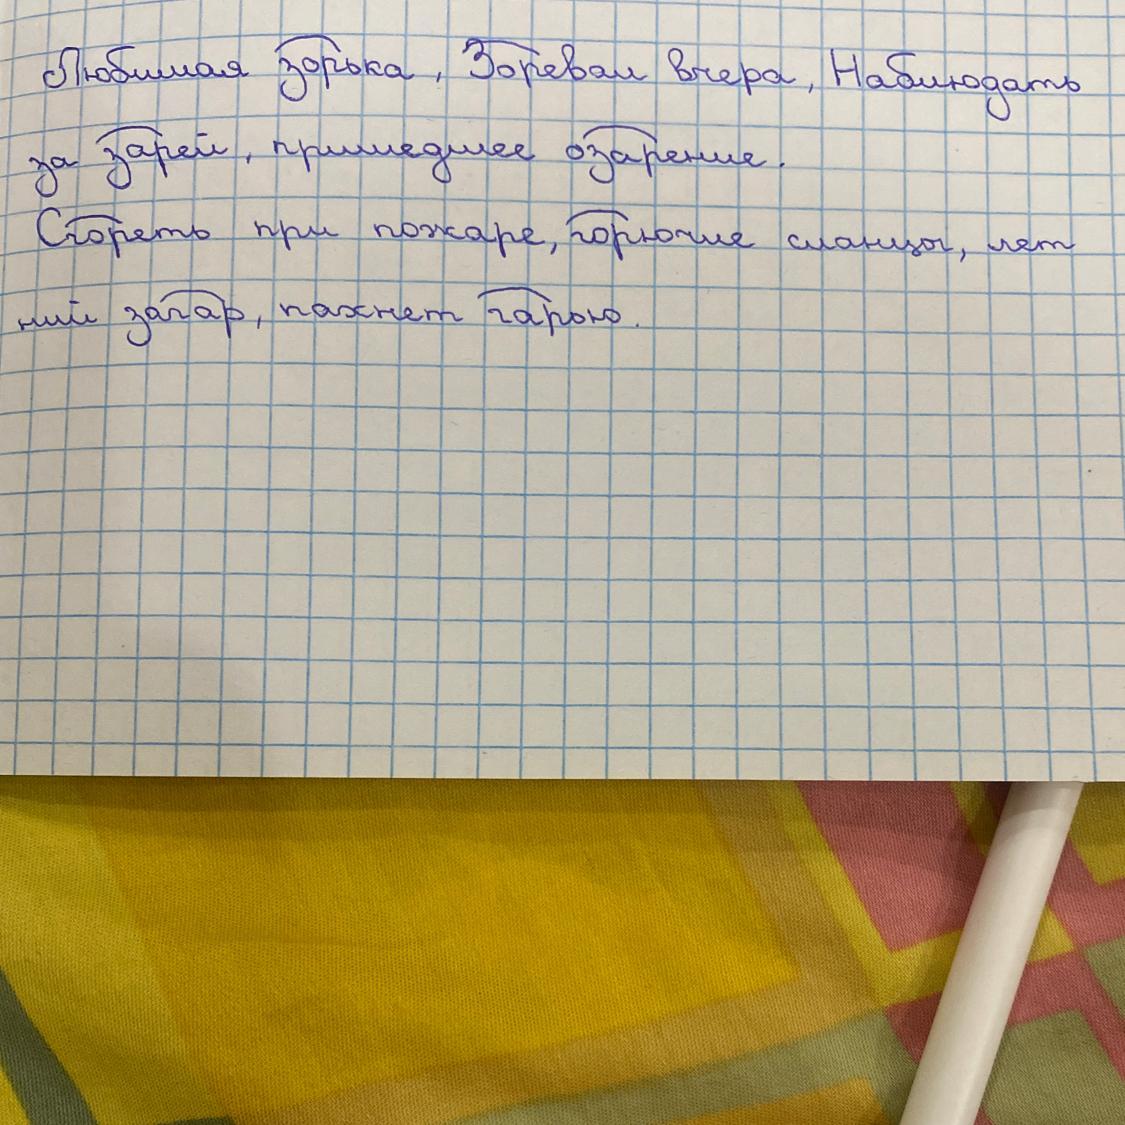 Любимая зорька, Зоревал вчера, Наблюдать
за зарей, пришедшее озарение.
Сгореть при пожаре, горючие сланцы, лет
ний загар, пахнет гарью.